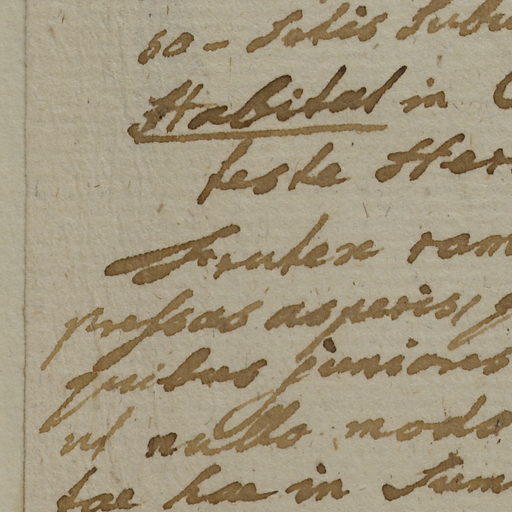 so - Solis, Subu
Habitat in C
teste Her
Frutex ram
pressas asperis, g
quibus juniores
ut nullo modo
tae hae in Sum